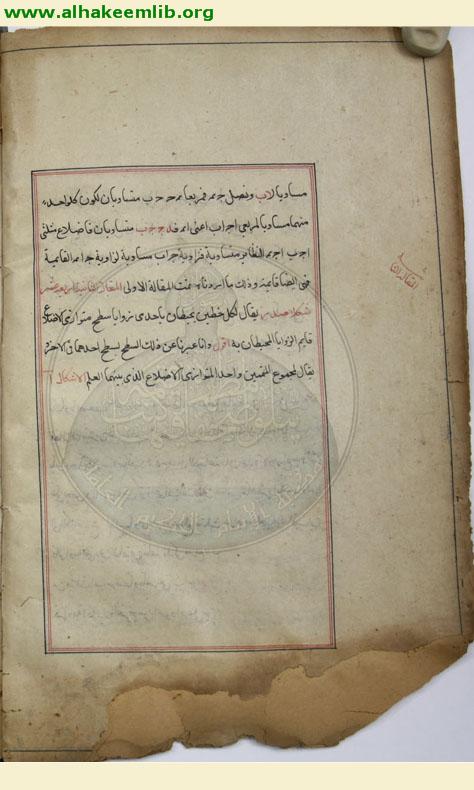 www.alhakeemlib.org
مساويا لاب ونصل جـ د فمربعا د جـ جـ ب متساويان لكون كل واحد
منهما مساويا لمربعى اجـ اب اعنى اجـ اد فد جـ جـ ب متساويان فاضلاع مثلثى
اجـ ب اجـ د النظاير متساوية فزاوية جـ اب مساوية لزاوية جـ اد القائمة
فهى ايضا قائمة وذلك ما اردناه تمت المقالة الاولى المقالة الثانية اربعة عشر
شكلا صدر يقال لكل خطين يحيطان باحدى زوايا سطح متوازى الاضلاع
قايم الزوايا المحيطان به اقول وانا عبرنا عن ذلك السطح بسطح احدهما فى الاخر
يقال لمجموع المتممين واحد المتوازى الاضلاع الذى بينهما العلم الاشكال
المقالة الثانية